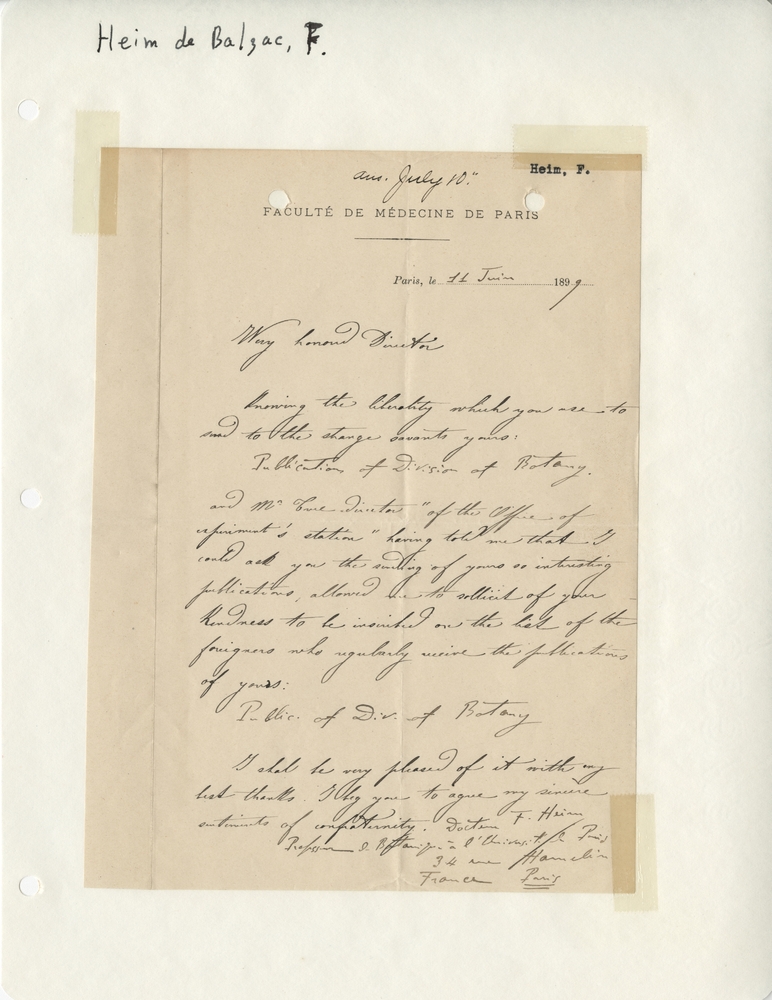 Heim de Balzac, F.
Heim, F.
ans. July 10."
FACULTÉ DE MÉDECINE DE PARIS
Paris, le 11 Juin 1899
Wery honored Director
Knowing the liberality which you use to
send to the strange savants yours:
Publications of Division of Botany.
and Mr True director "of the Office of
experiment's station" having told me that I
could ask you the sending of yours so interesting
publications, allowed me to sollicit of your
Kindness to be inscribed on the list of the
foreigners who regularly receive the publications
of yours:
Public. of Div. of Botany
I shal be very pleased of it with my
best thanks. I beg you to agree my sincere
sentiments of confraternity. Docteur F. Heim
Professeur de Botanique à l'Université de Paris
34 rue Hamelin
France Paris